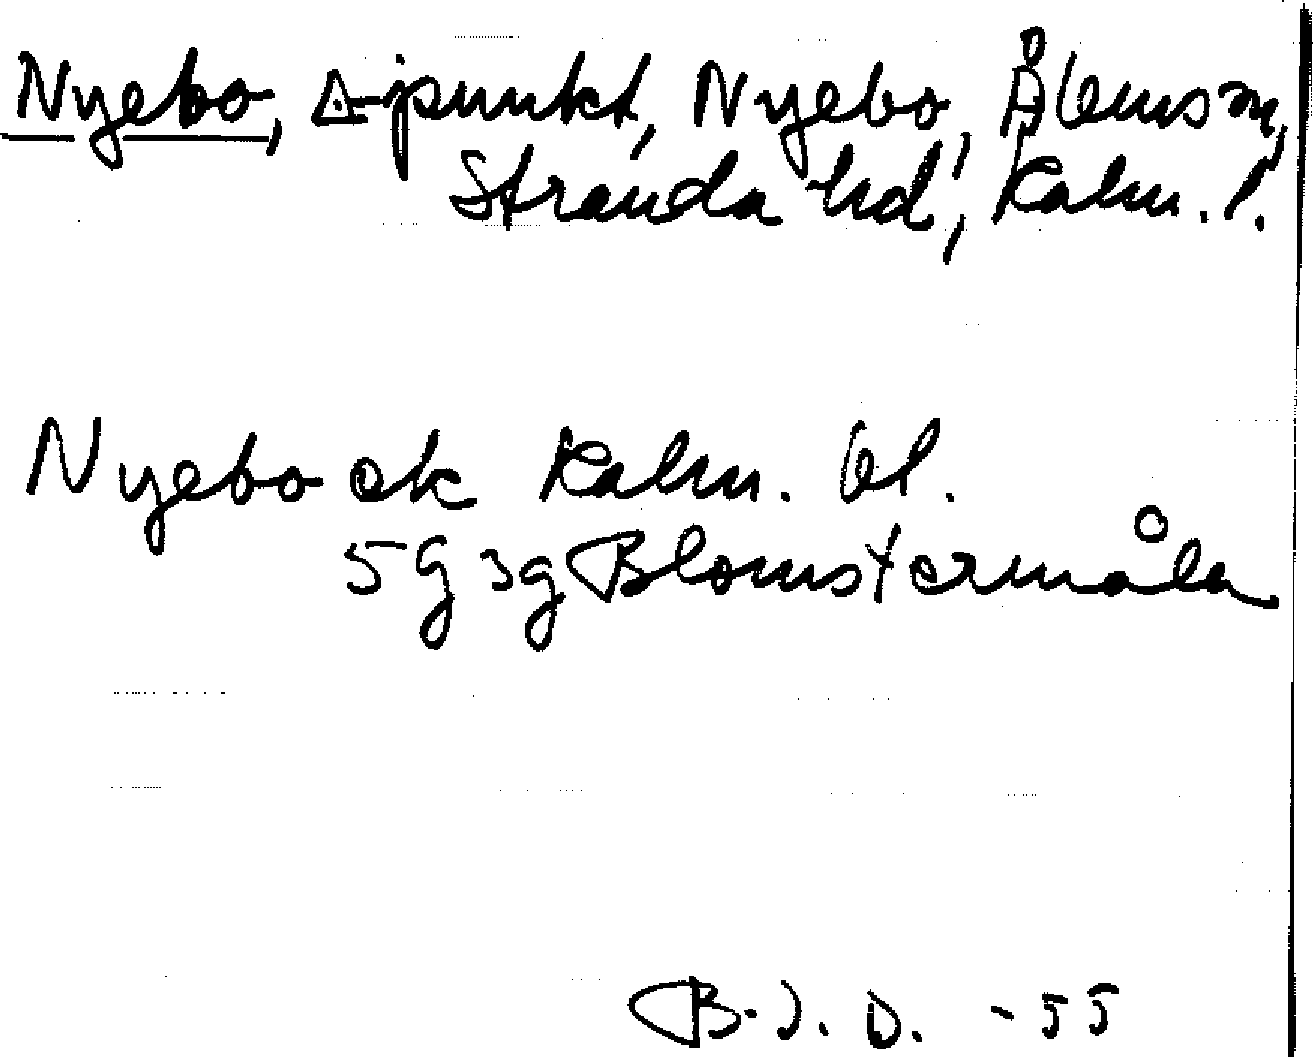 Nyebo, △-punkt, Nyebo, Ålems sn,
Stranda hd, Kalm. l.
Nyebo ek Kalm. bl.
5G3g Blomstermåla
B.J.D. -55